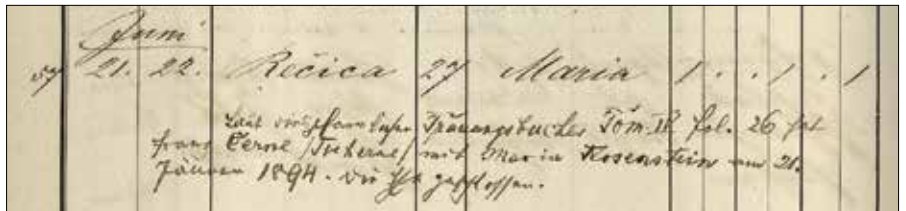 Juni
57 21. 22. Rečica 27 Maria 1 . . 1 . 1
Laut Trauungsbuches Tom. IX fol. 26 hat
Franz Černe /Tscherne/ mit Maria Rosenstein am 21.
Jänner 1894. die Ehe geschlossen.